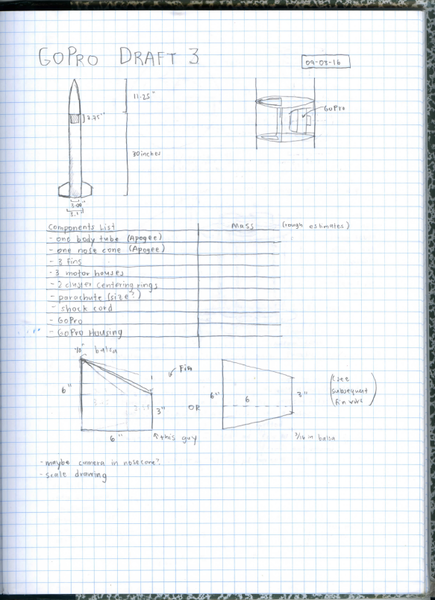 GoPro Draft 3
09-03-16
11.25"
2.75"
GoPro
30 inches
3.00
3.1"
Components List Mass (rough estimates)
- one body tube (Apogee)
- one nose cone (Apogee)
- 3 fins
- 3 motor houses
- 2 cluster centering rings
- parachute (size?)
- shock cord
- GoPro
- GoPro Housing
balsa
Fin
6"
3"
6"
this guy
OR
6"
6
3"
(see subsequent
fin view)
3/16 in balsa
- maybe camera in nosecone?
- scale drawing